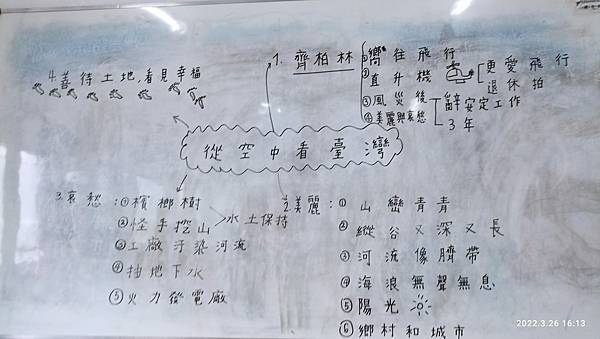 從空中看臺灣
1. 齊柏林
①嚮往飛行
②直升機
更愛飛行
退休拍
③風災後
辭安定工作
3年
④美麗與哀愁
2.美麗：①山巒青青
②縱谷又深又長
③河流像臍帶
④海浪無聲無息
⑤陽光
⑥鄉村和城市
3.哀愁：①檳榔樹
②怪手挖山
>水土保持
③工廠汙染河流
④抽地下水
⑤火力發電廠
4.善待土地,看見幸福
2022.3.26 16:13